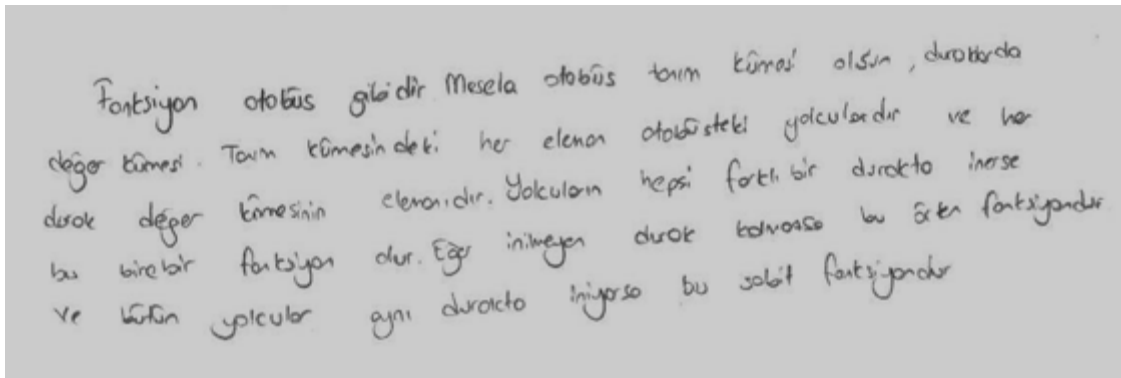 Fonksiyon otobüs gibidir Mesela otobüs tanım kümesi olsun, duraklarda
değer kümesi. Tanım kümesindeki her eleman otobüsteki yolculardır ve her
durak değer kümesinin elemanıdır. Yolcuların hepsi farklı bir durakta inerse
bu birebir fonksiyon olur. Eğer inilmeyen durak kalmazsa bu örten fonksiyondur
ve bütün yolcular aynı durakta iniyorsa bu sabit fonksiyondur